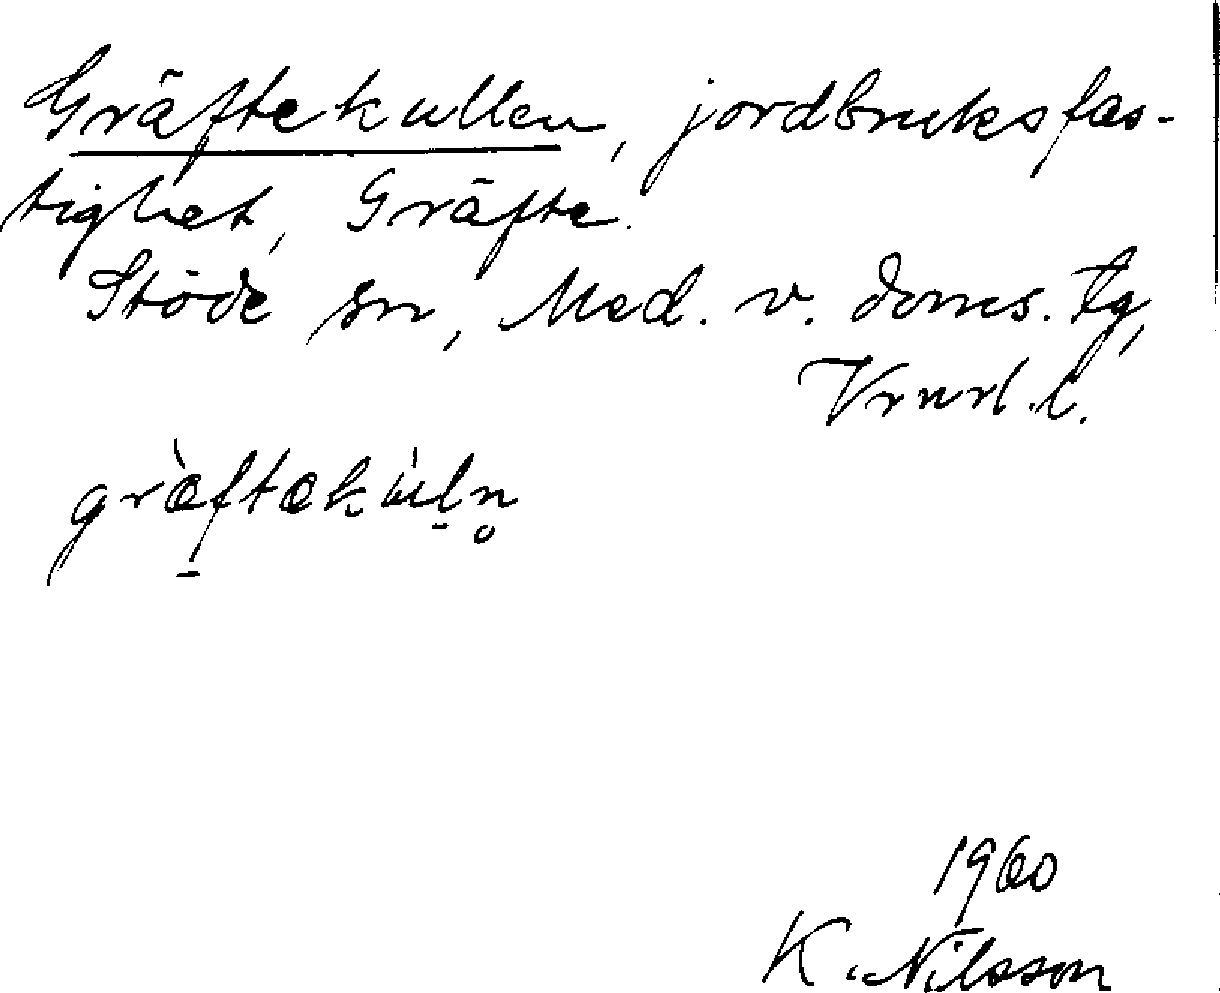 Gräftekullen, jordbruksfas-
tighet, Gräfte.
Stöde sn, Med. v. doms. tg,
Vrnrl. l.
græ̀ftækùl̠n̥
1960
K. Nilsson